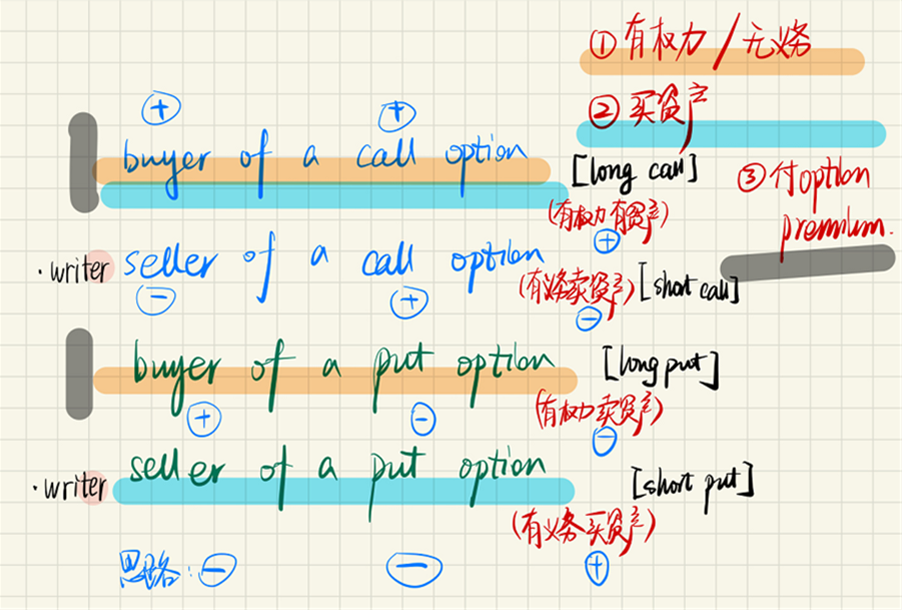 ① 有权力 / 无义务
② 买资产
③ 付option premium.
⊕ ⊕
buyer of a call option [long call]
(有权力有资产)
⊕
·writer seller of a call option (有义务卖资产) [short call]
⊖ ⊕ ⊖
buyer of a put option [long put]
(有权力卖资产)
⊕ ⊖ ⊖
·writer seller of a put option [short put]
(有义务买资产)
思路: ⊖ ⊖ ⊕